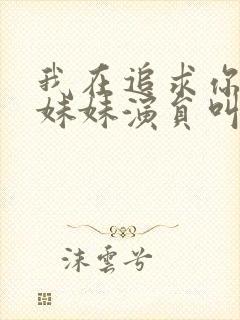 我在追求你
妹妹演員叫
沫雲兮